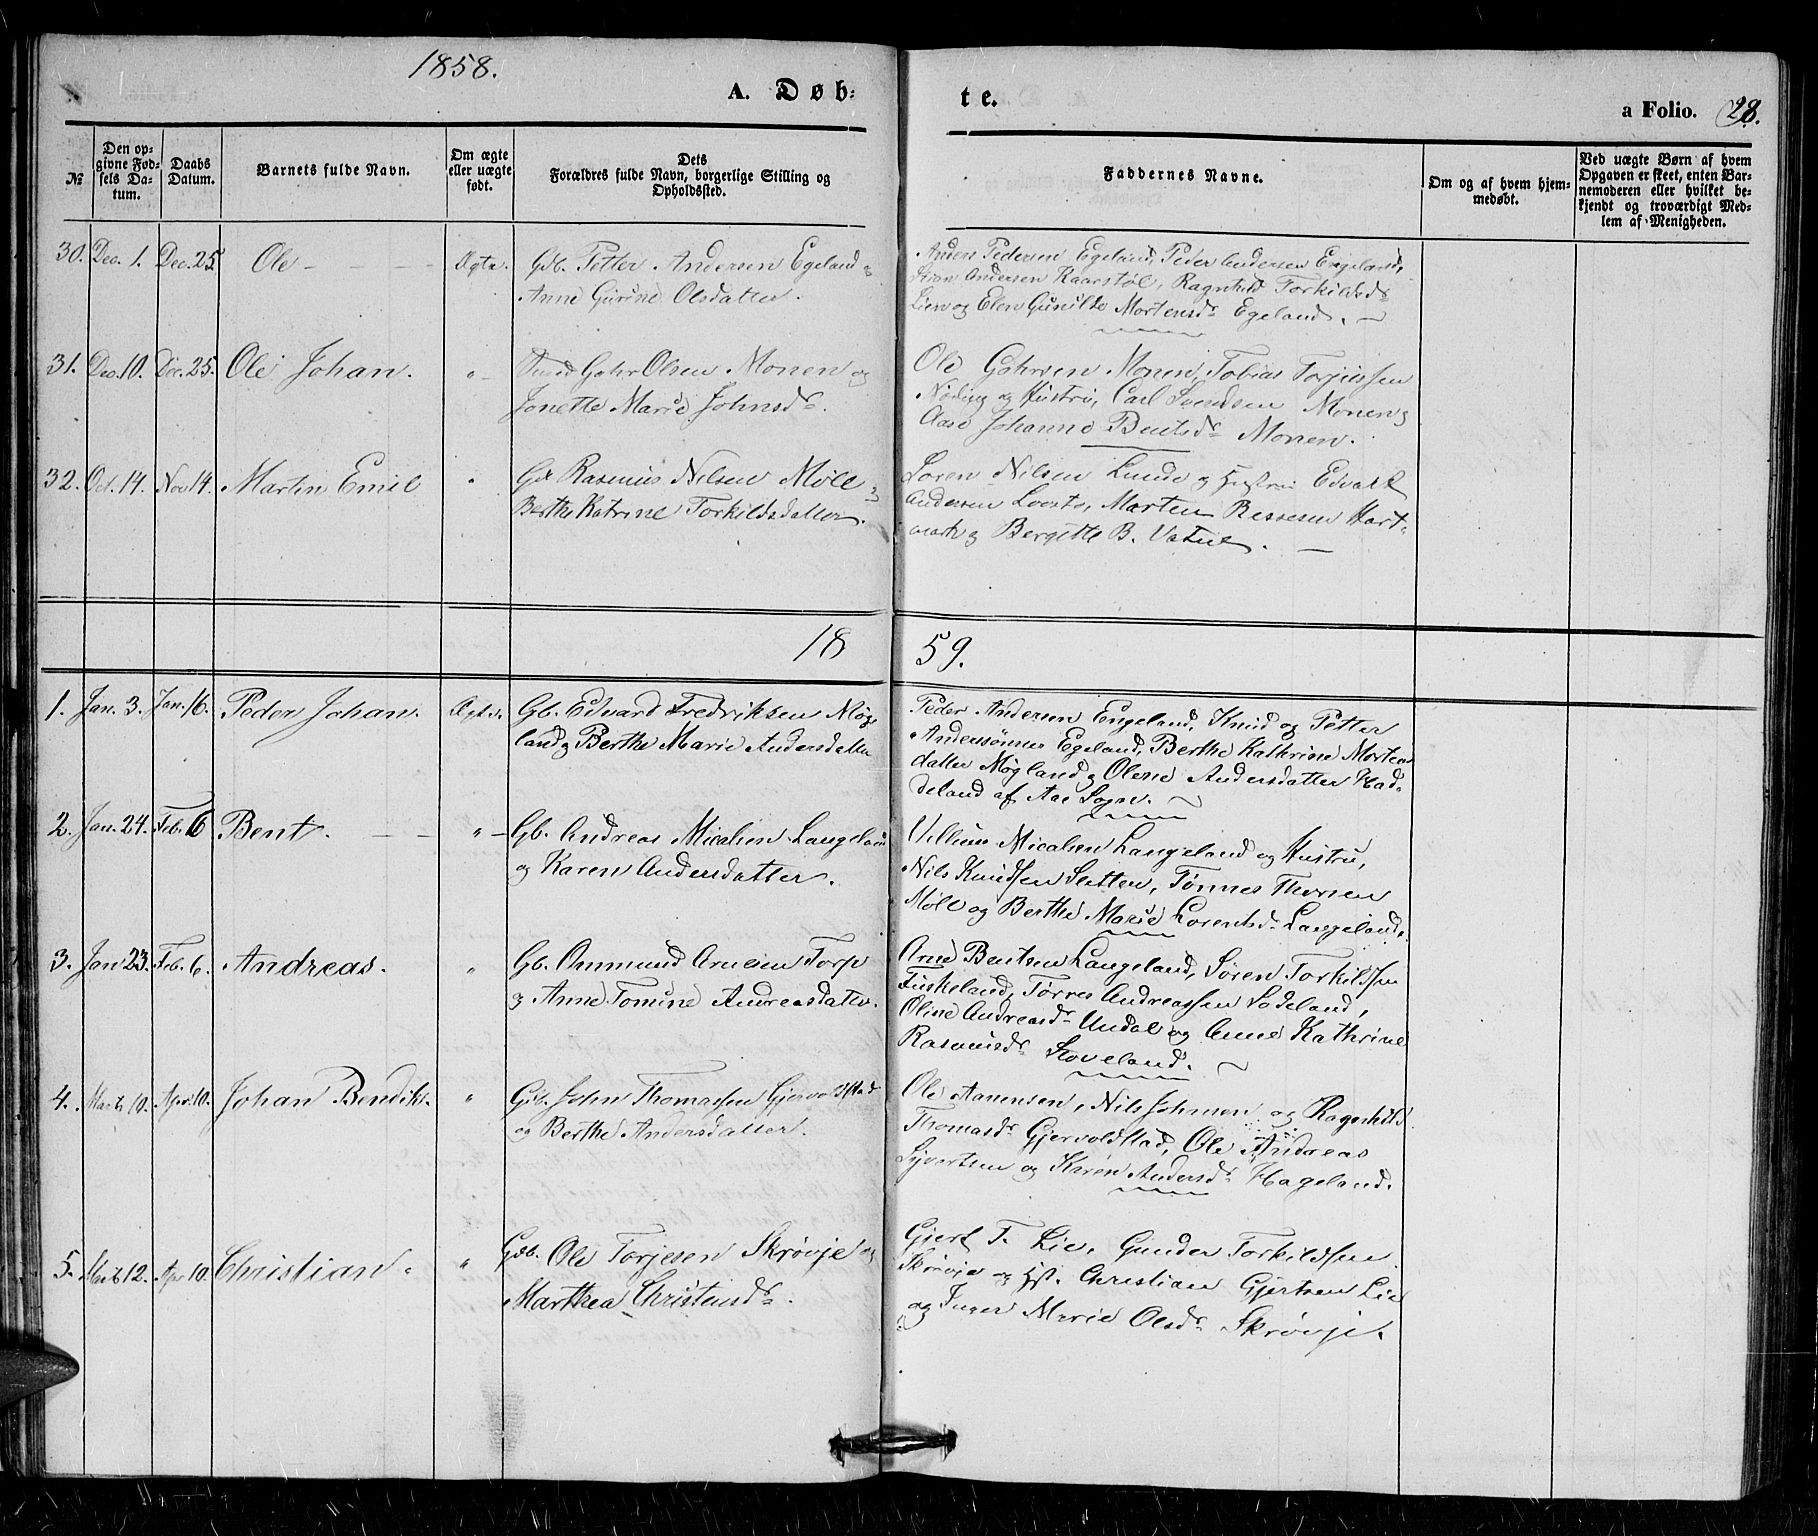 1858.
A. Døb-
te.
a Folio. 28.
№
Den opgivne Fødsels Datum.
Daabs Datum.
Barnets fulde Navn.
Om ægte eller uægte født.
Dets Forældres fulde Navn, borgerlige Stilling og Opholdssted.
Faddernes Navne.
Om og af hvem hjemmedøbt.
Ved uægte Børn af hvem Opgaven er skeet, enten Barnemoderen eller hvilket bekjendt og troværdigt Medlem af Menigheden.
30. Dec. 1. Dec. 25. Ole Ægte. Gb. Petter Andersen Egeland
Anne Gurine Olsdatter.
Anders Pedersen Egeland, Peder Andersen Engeland,
Andersen Kaarstøl, Ragnhild Torkildsdr
Lien og Elen Gunilde Mortensdr Egeland.
31. Dec. 10. Dec. 25. Ole Johan. " Olsen Monen og
Jonette Marie Johnsdr.
Ole Monen, Tobias Torjussen
Nøding og Hustru, Carl Svendsen Monen og
Aase Johanne Bentsdr Monen.
32. Oct. 14. Nov 14. Martin Emil " Rasmus Nilsen Møll og
Berthe Katrine Torkildsdatter.
Søren Nilsen Lunde og Hustru Edvart
Andersen Marten Hart-
mark og Bergitte B. Vatne.
1859.
1. Jan. 3. Jan. 16. Peder Johan. Ægte. Gb. Edvard Fredriksen Møg-
land og Berthe Marie Andersdatter
Peder Andersen Engeland, Knud og Petter
Anderssønner Egeland, Berthe Kathrine Mortens
datter Møgland og Olene Andersdatter Had-
deland af Aae Sogn.
2. Jan. 24. Feb. 6 Bent. " Gb. Andreas Micalsen Langeland
og Karen Andersdatter.
Villum Micalsen Langeland og Hustru,
Nils Knudsen Sletten, Tønnes Thorsen
Møll og Berthe Marie Lorentsdr Langeland.
3. Jan 23. Feb. 6. Andreas. " Gb. Ommund Arnesen Torp
og Anne Tomine Andreasdatter.
Arne Bentsen Langeland, Søren Torkildsen
Fuskeland, Tørres Andreassen Sodeland,
Oline Andreasdr Undal og Anne Kathrine
Rasmusdr Stoveland.
4. Marts 10. Apr. 10. Johan Bendik. " Gb. John Thomassen Gjervoldstad
og Berthe Andersdatter.
Ole Aanensen, Nils Johnsen og Ragnhild
Thomasdr Gjervoldstad, Ole Andreas
Syvertsen og Karen Andersdr Hageland.
5. Marts 12. Apr 10. Christian. " Gdb. Ole Torjesen Skrøvje og
Marthea Christensdr.
Gjert T. Lie, Gunder Torkildsen
Skrøvje og Hst. Christian Gjertsen Lie
og Inger Marie Olsdr Skrøvje.